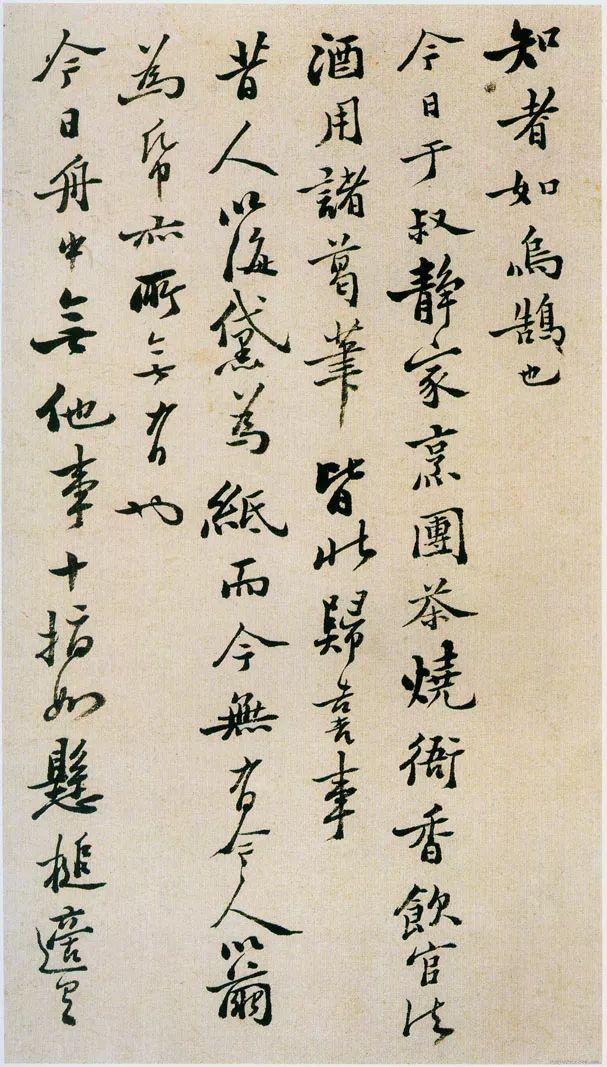 知者如鳴鵠也
今日于叔靜家烹團茶燒衙香飲官法
酒用諸葛筆皆此歸喜事
昔人以海黛為紙而今無有今人以繭
為帋亦所無有也
今日舟中無他事十指如懸槌適